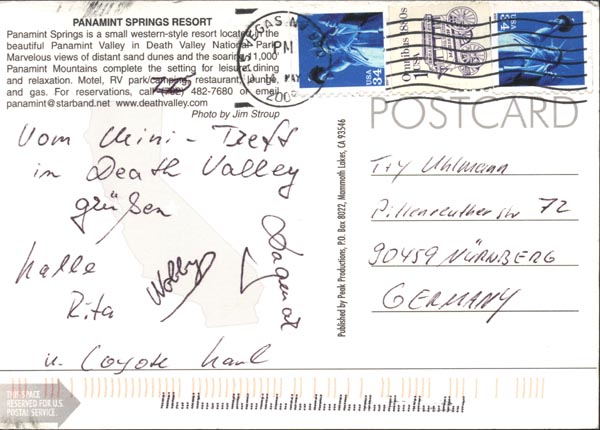 PANAMINT SPRINGS RESORT
Panamint Springs is a small western-style resort located in the
beautiful Panamint Valley in Death Valley National Park.
Marvelous views of distant sand dunes and the soaring 11,000'
Panamint Mountains complete the setting for leisure dining
and relaxation. Motel, RV park/camping, restaurant, lounge
and gas. For reservations, call 482-7680 or email
panamint@starband.net www.deathvalley.com
Photo by Jim Stroup
VEGAS NV
PM
MAY
USA 34
Omnibus 1880s
1c USA
USA 34
POSTCARD
Vom Mini-Treff
in Death Valley
grüßen
Kalle
Rita
Wobby
Dagmar
u. Coyote Karl
Published by Peak Productions, P.O. Box 8022, Mammoth Lakes, CA 93546
T+Y Uhlmann
Pillenreuther Str 72
90459 NÜRNBERG
GERMANY
THIS SPACE
RESERVED FOR U.S.
POSTAL SERVICE.